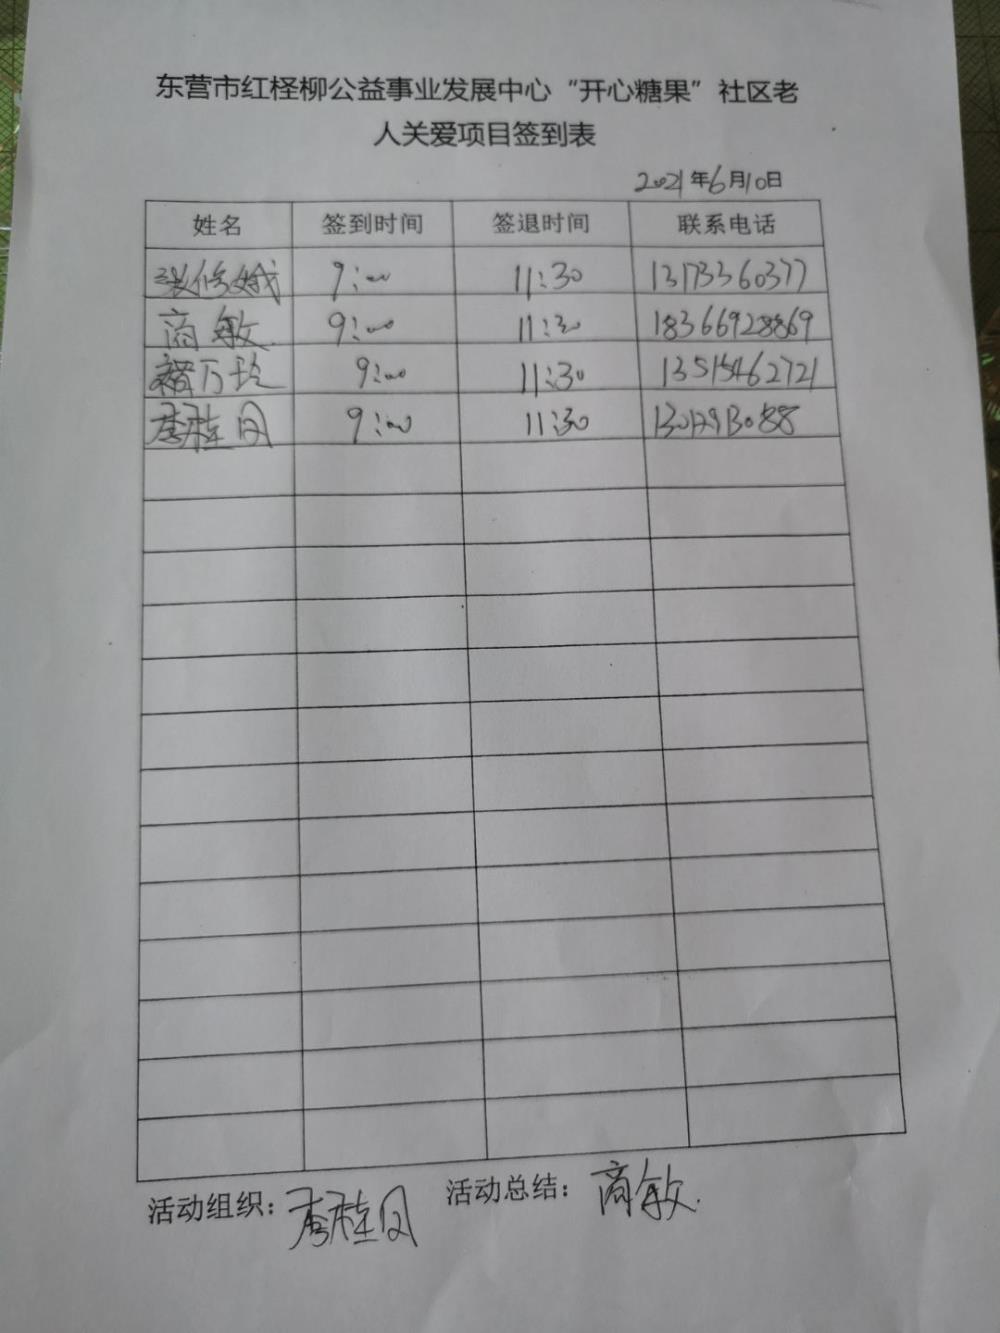 东营市红柽柳公益事业发展中心“开心糖果”社区老
人关爱项目签到表
2021年6月10日
姓名 签到时间 签退时间 联系电话
张修娥 9:00 11:30 13173360377
商敏 9:00 11:30 18366928869
褚万玲 9:00 11:30 13515462721
李桂凤 9:00 11:30
活动组织：李桂凤 活动总结：商敏.